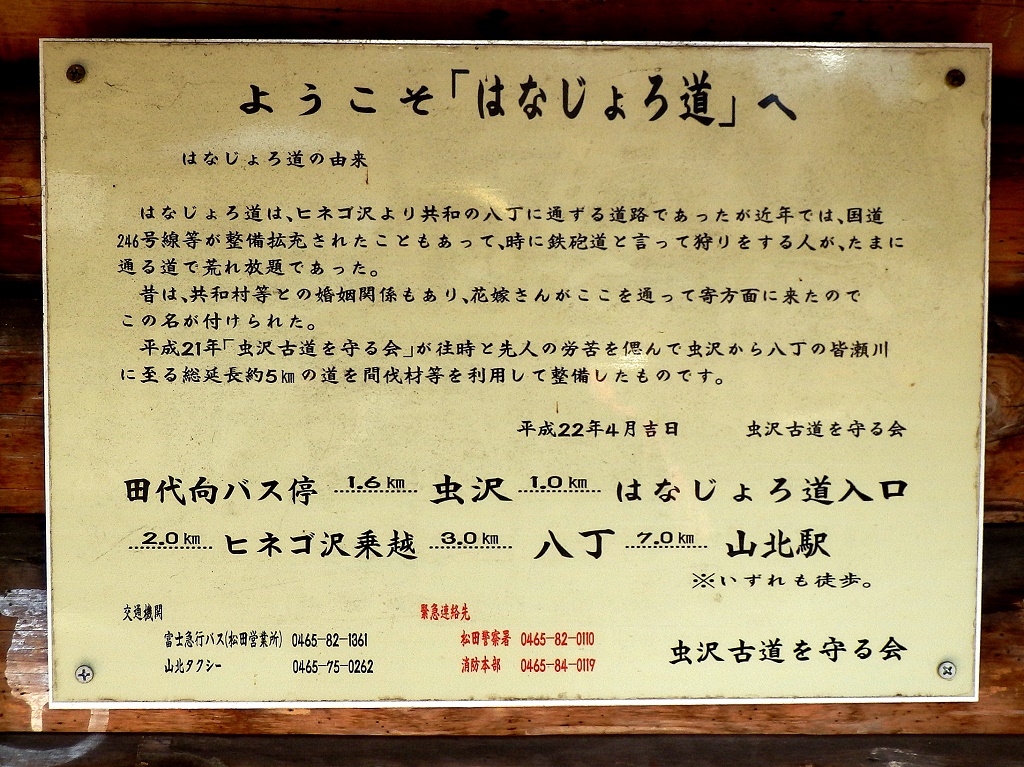 ようこそ「はなじょろ道」へ
はなじょろ道の由来
はなじょろ道は、ヒネゴ沢より共和の八丁に通ずる道路であったが近年では、国道
246号線等が整備拡充されたこともあって、時に鉄砲道と言って狩りをする人が、たまに
通る道で荒れ放題であった。
昔は、共和村等との婚姻関係もあり、花嫁さんがここを通って寄方面に来たので
この名が付けられた。
平成21年「虫沢古道を守る会」が往時と先人の労苦を偲んで虫沢から八丁の皆瀬川
に至る総延長約5㎞の道を間伐材等を利用して整備したものです。
平成22年4月吉日　虫沢古道を守る会
田代向バス停 1.6㎞ 虫沢 1.0㎞ はなじょろ道入口
2.0㎞ ヒネゴ沢乗越 3.0㎞ 八丁 7.0㎞ 山北駅
※いずれも徒歩。
交通機関
富士急行バス(松田営業所) 0465-82-1361
山北タクシー 0465-75-0262
緊急連絡先
松田警察署 0465-82-0110
消防本部 0465-84-0119
虫沢古道を守る会